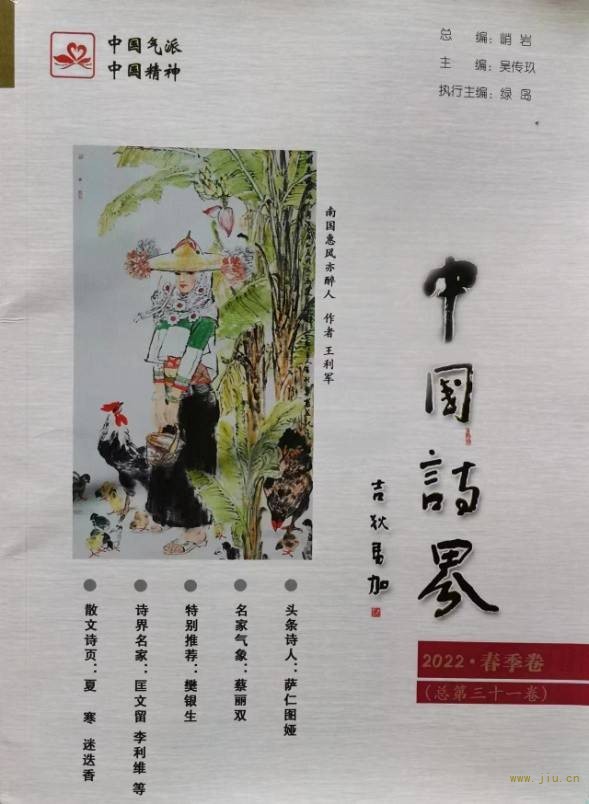 中国气派
中国精神
总 编：峭岩
主 编：吴传玖
执行主编：绿岛
南国惠风亦醉人 作者 王利军
中國詩界
吉狄馬加
2022·春季卷
（总第三十一卷）
头条诗人：萨仁图娅
名家气象：蔡丽双
特别推荐：樊银生
诗界名家：匡文留 李利维 等
散文诗页：夏 寒 迷迭香
www.jiu.cn